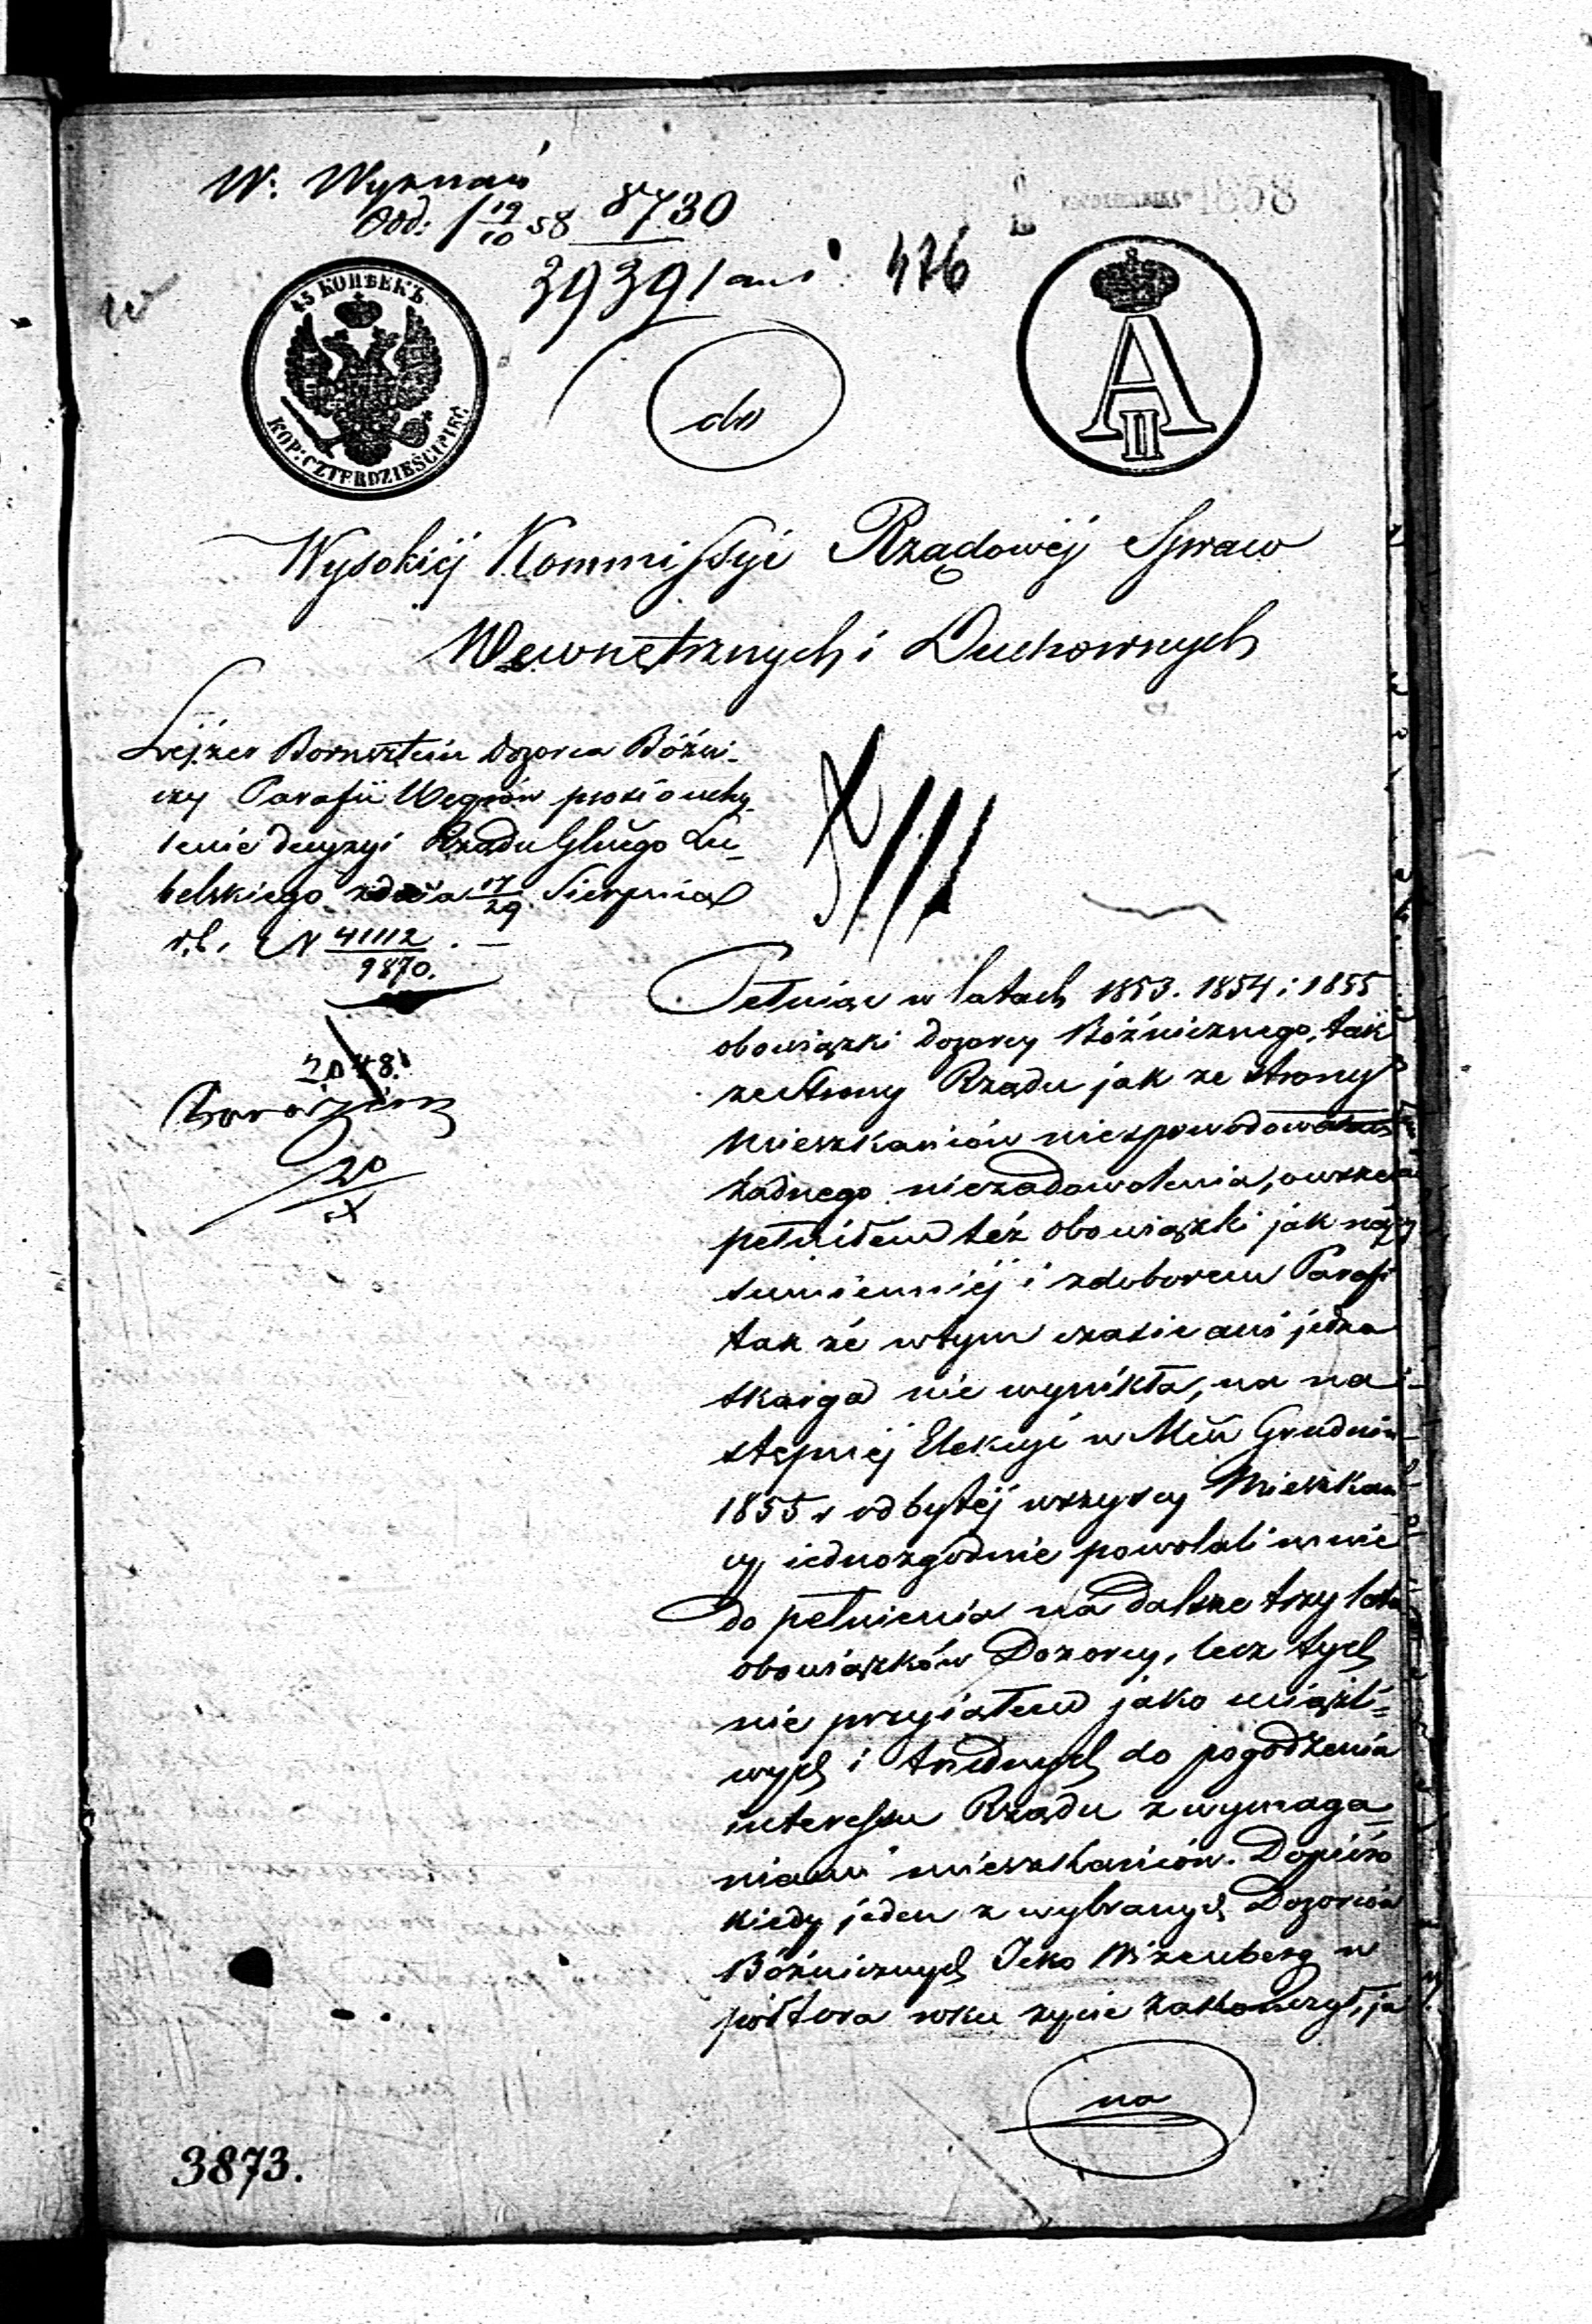 W. Wyznań
Odd: 19/10 58 8730
39391 476
1858
45 КОПѢЕКЪ
KOP: CZTERDZIEŚCI PIĘĆ
A II
do
Wysokiéj Kommissyi Rządowéj Spraw
Wewnętrznych i Duchownych
Lejzer Bornsztein Dozorca Bóżni-
czy Parafii Węgrów prosi o uchy-
lenie decyzyi Rządu Glnego Lu-
belskiego z dnia 17/29 Sierpnia
r.b. N 41112/9870. —
2048.
20/X
XIII
Pełniąc w latach 1853. 1854 i 1855
obowiązki dozorcy Bóżnicznego, tak
ze strony Rządu jak ze strony
Mieszkańców niespowodowałem
żadnego niezadowolenia, owszem
pełniłem też obowiązki jak naj
sumienniéj i z doborem Parafi
tak że w tym czasie ani jedna
skarga nie wynikła, na na
stępnéj Elekcyi w Mcu Grudniu
1855 r odbytéj wszyscy Mieszkań
cy iednozgodnie powołali mnie
do pełnienia na dalsze trzy lata
obowiązków Dozorcy, lecz tych
nie przyiąłem jako uciążli=
wych i trudnych do pogodzenia
interessu Rządu z wymaga
niami mieszkańców. Dopiéro
kiedy jeden z wybranych Dozorców
Bóżnicznych Icko Wizenberg w
półtora roku życie zakończył, ja
na
3873.